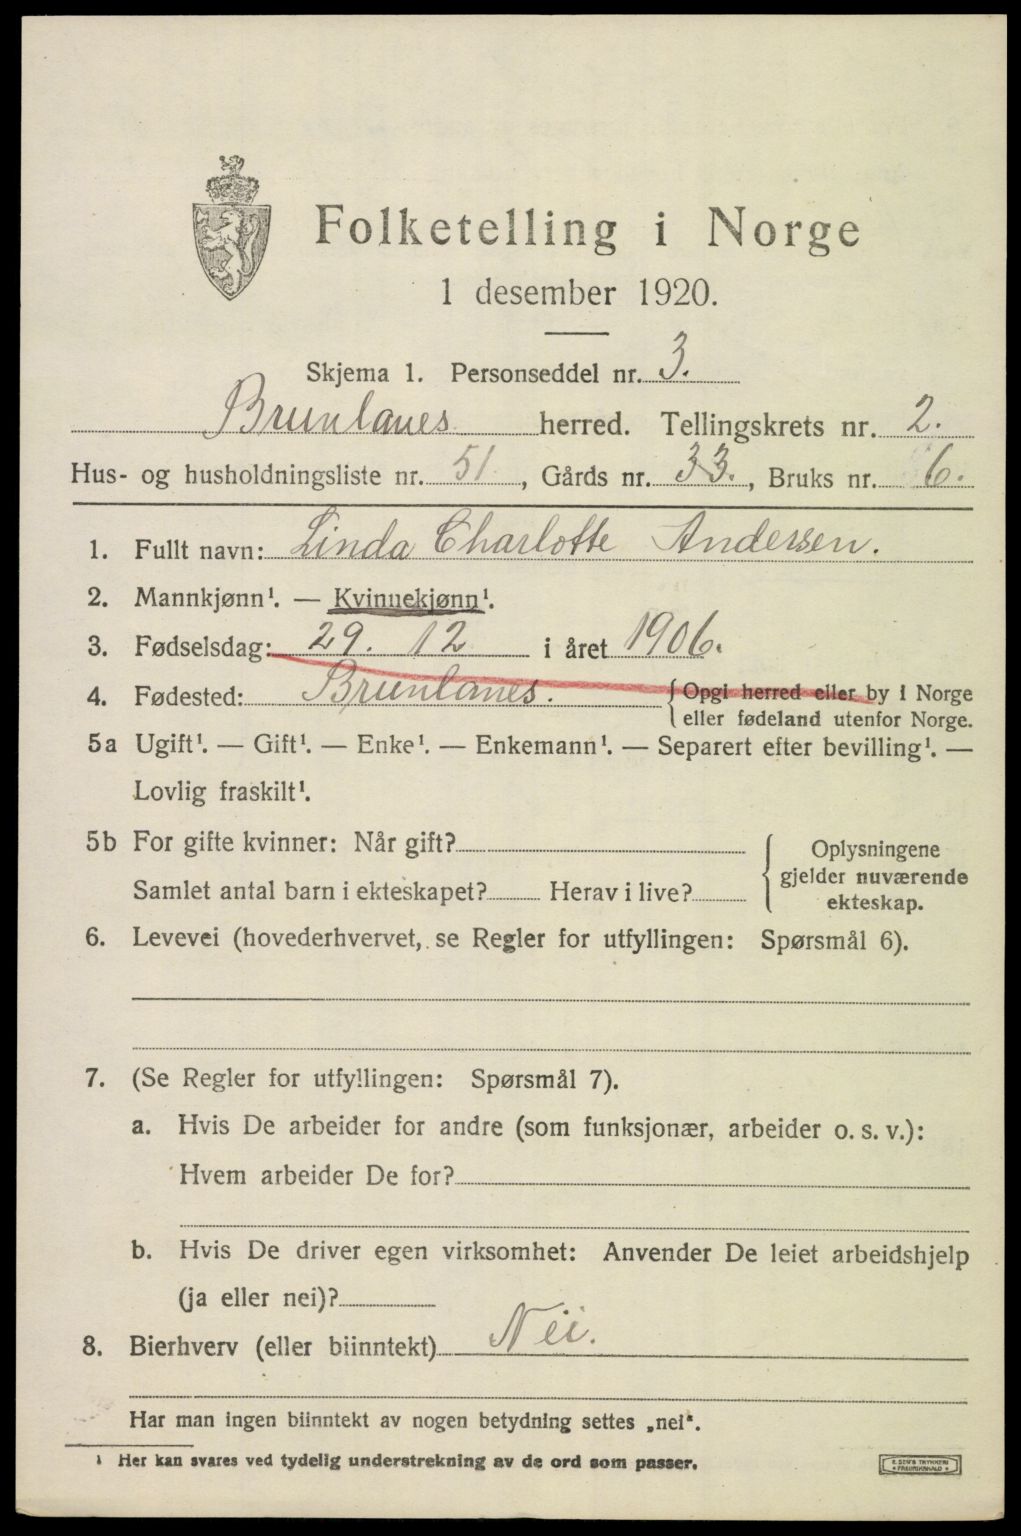 Folketelling i Norge
1 desember 1920.
Skjema 1. Personseddel nr. 3.
Brunlanes herred. Tellingskrets nr. 2.
Hus- og husholdningsliste nr. 51, Gårds nr. 33., Bruks nr. 6.
1. Fullt navn: Linda Charlotte Andersen.
2. Mannkjønn¹. — Kvinnekjønn¹.
3. Fødselsdag: 29. 12 i året 1906.
4. Fødested: Brunlanes. { Opgi herred eller by i Norge
eller fødeland utenfor Norge.
5a Ugift¹. — Gift¹. — Enke¹. — Enkemann¹. — Separert efter bevilling¹. —
Lovlig fraskilt¹.
5b For gifte kvinner: Når gift?
Samlet antal barn i ekteskapet? Herav i live?
Oplysningene
gjelder nuværende
ekteskap.
6. Levevei (hovederhvervet, se Regler for utfyllingen: Spørsmål 6).
7. (Se Regler for utfyllingen: Spørsmål 7).
a. Hvis De arbeider for andre (som funksjonær, arbeider o. s. v.):
Hvem arbeider De for?
b. Hvis De driver egen virksomhet: Anvender De leiet arbeidshjelp
(ja eller nei)?
8. Bierhverv (eller biinntekt) Nei.
Har man ingen biinntekt av nogen betydning settes „nei“.
¹ Her kan svares ved tydelig understrekning av de ord som passer.
E. SEM'S TRYKKERI
• FREDRIKSHALD •